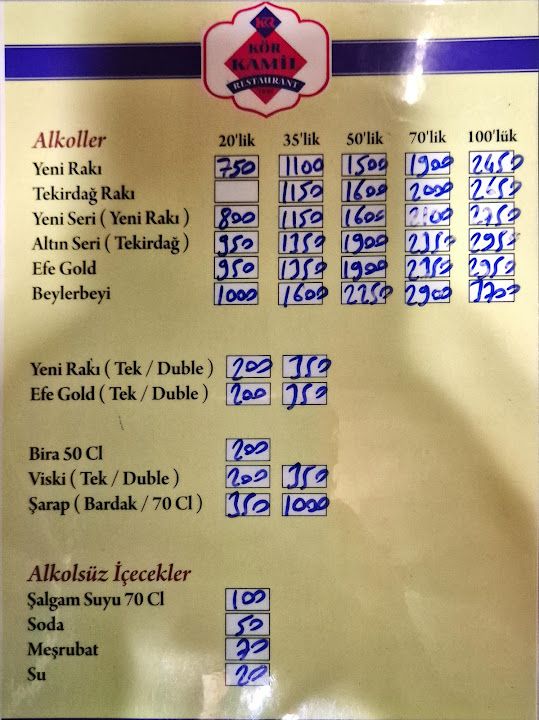 KR
KÖR
KAMİL
RESTAURANT
Alkoller 20'lik 35'lik 50'lik 70'lik 100'lük
Yeni Rakı 750 1100 1500 1900 2450
Tekirdağ Rakı 1150 1600 2000 2650
Yeni Seri ( Yeni Rakı ) 800 1150 1600 2100 2750
Altın Seri ( Tekirdağ ) 950 1350 1900 2350 2950
Efe Gold 950 1350 1900 2350 2950
Beylerbeyi 1000 1600 2250 2900 3700
Yeni Rakı ( Tek / Duble ) 200 350
Efe Gold ( Tek / Duble ) 200 350
Bira 50 Cl 200
Viski ( Tek / Duble ) 200 350
Şarap ( Bardak / 70 Cl ) 350 1000
Alkolsüz İçecekler
Şalgam Suyu 70 Cl 100
Soda 50
Meşrubat 70
Su 20